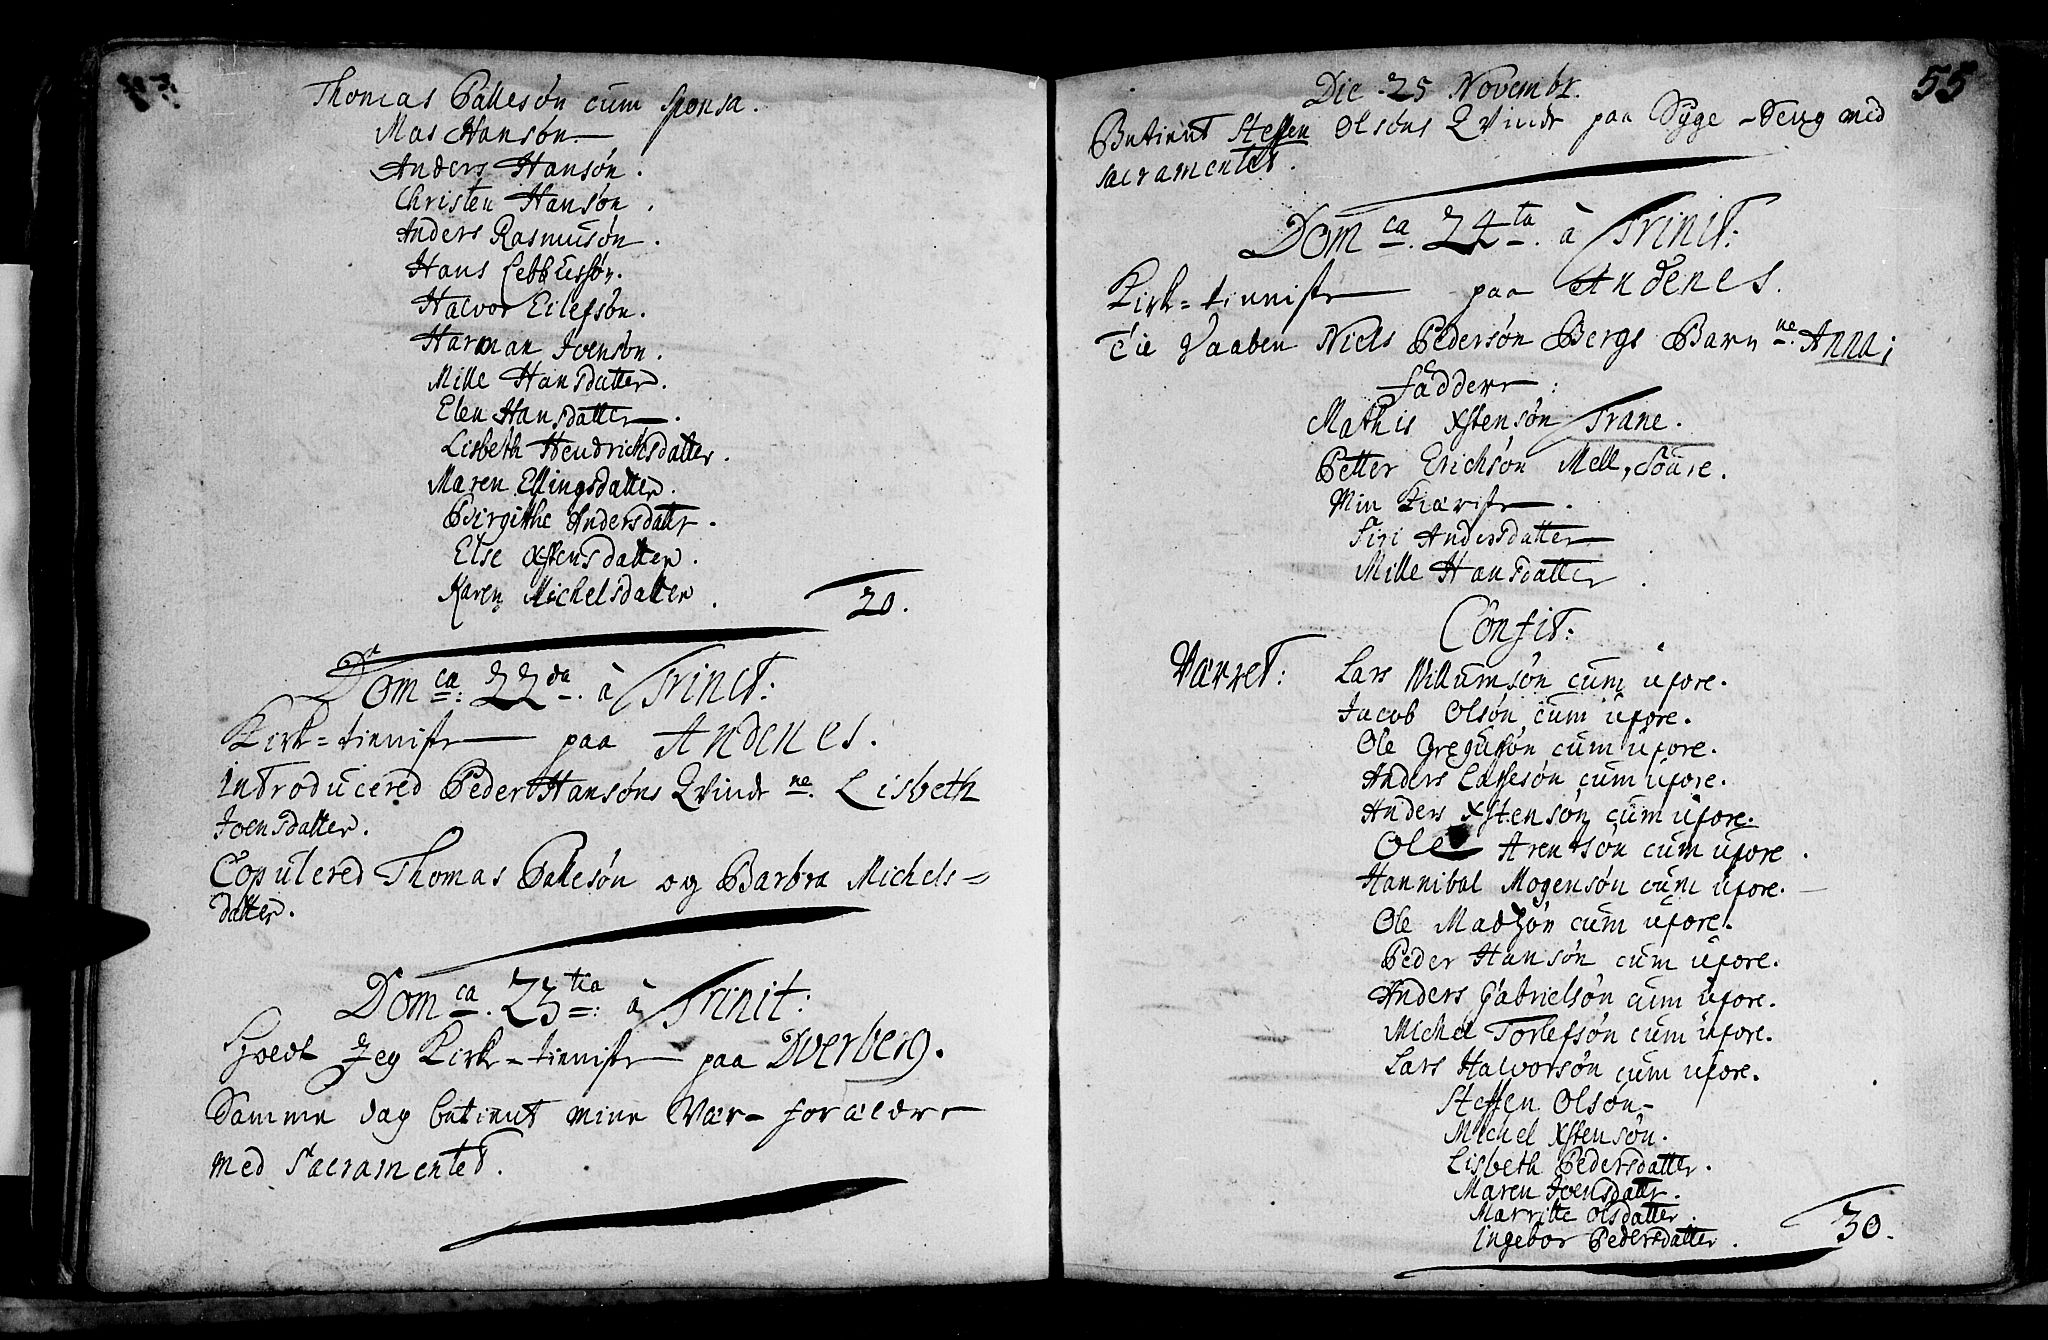 Thomas Pallesøn cum sponsa.
Mas Hansøn.
Anders Hansøn.
Christen Hansøn.
Anders Rasmusøn.
Hans
Halvor Eilefsøn.
Harman Joensøn.
Mille Hansdatter.
Elen Hansdatter.
Lisbeth Hendrichsdatter.
Maren Ellingsdatter.
Birgithe Andersdattr.
Else Xstensdatter.
Karen Michelsdatter.
20.
Domca: 22da. à Trinit:
Kirk=tienniste paa Andenes.
Introducered Peder Hansøns Qvinde ne. Lisbeth
Joensdatter.
Copulered Thomas Pallesøn og Barbra Michels=
datter.
Domca. 23tia: à Trinit:
Jeg Kirk=tienniste paa Dverberg.
Samme dag betient mine Vær-forældre
med Sacramentet.
55
Die 25 Novembr.
Betient Steffen Olsøns Qvinde paa Syge-Seng med
sacramentet.
Domca. 24ta. à Trinit:
Kirk=tienniste paa Andenes.
Niels Pedersøn Bergs Barn ne Anna;
faddere:
Mathis Xstensøn Trane.
Petter Erichsøn Mell,
Min Kiæriste.
Siri Andersdatter
Mille Hansdatter.
Confit:
Værret: Lars Willumsøn cum uxore.
Jacob Olsøn cum uxore.
Ole Gregussøn cum uxore.
Anders Lassesøn cum uxore.
Anders Xstensøn cum uxore.
Ole Arentsøn cum uxore.
Hannibal Mogensøn cum uxore.
Ole Madzøn cum uxore.
Peder Hansøn cum uxore.
Anders Gabrielsøn cum uxore.
Michel Torlefsøn cum uxore.
Lars Halvorsøn cum uxore.
Steffen Olsøn
Michel Xstensøn.
Lisbeth Pedersdatter.
Maren Joensdattr.
Marritte Olsdatter.
Ingebor Pedersdatter.
30.